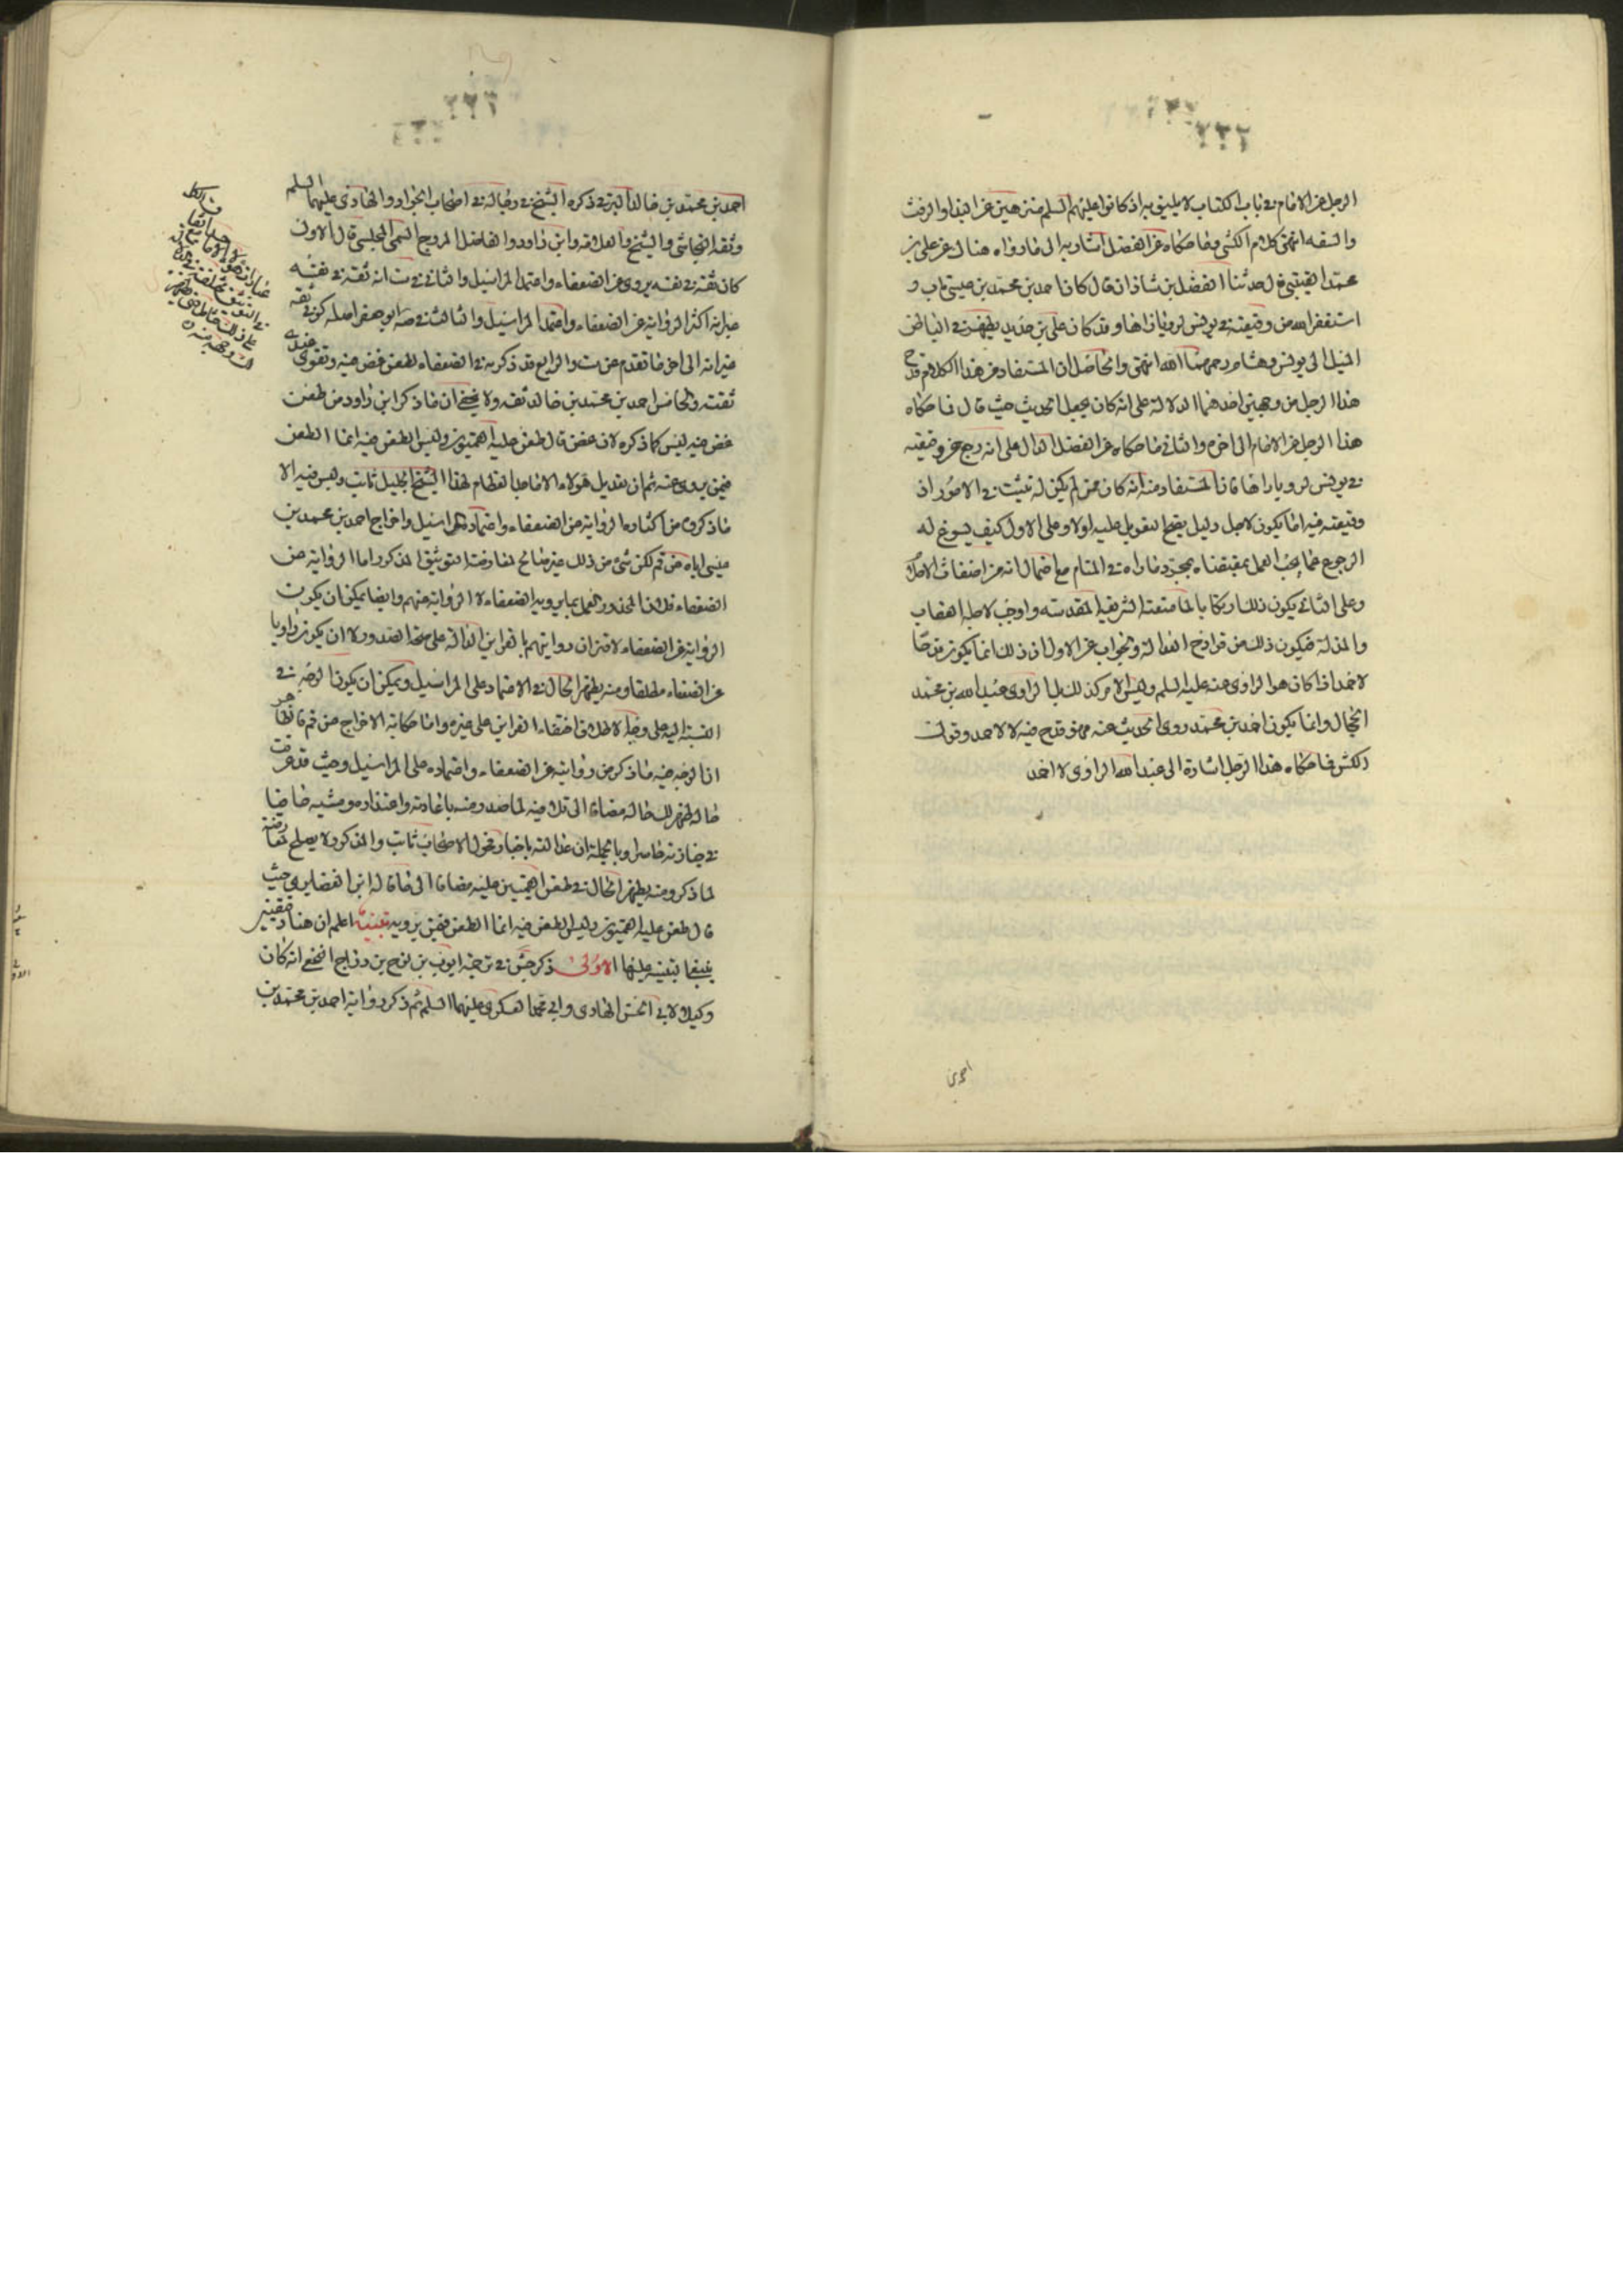 ٢٣٢
الرجل عن الامام في باب الكتاب لا يليق به اذ كانوا عليهم السلم منزهين عن البذاء والرفث
والسفه انتهى كلام الكشي وما حكاه عن الفضل اشار به الى ما رواه هناك عن علي بن
محمد القتيبي قال حدثنا الفضل بن شاذان قال كان احمد بن محمد بن عيسى تاب و
استغفر الله من وقيعته في يونس لرؤيا راها وقد كان علي بن حديد يظهر في الباطن
الميل الى يونس وهشام رحمهما الله انتهى والحاصل ان المستفاد من هذا الكلام قدح
هذا الرجل من وجهين احدهما الدلالة على انه كان يجعل الحديث حيث قال فما حكاه
هذا الرجل عن الامام الى اخره والثاني ما حكاه عن الفضل الدال على انه رجع عن وقيعته
في يونس لرؤيا راها فان المستفاد منه انه كان ممن لم يكن له تثبت في الامور اذ
وقيعته فيه اما يكون لاجل دليل يصح التعويل عليه اولا وعلى الاول كيف يسوغ له
الرجوع عما يجب العمل بمقتضاه بمجرد ما راه في المنام مع احتمال انه من اضغاث الاحلام
وعلى الثاني يكون ذلك ارتكابا لما منعته الشريعة المقدسة واوجب لاجله العقاب
والمذلة فيكون ذلك من قوادح العدالة والجواب عن الاول ان ذلك انما يكون قدحا
لاحمد اذا كان هو الراوي عنه عليه السلم وليس الامر كذلك بل الراوي عبد الله بن محمد
الحجال وانما يكون احمد بن محمد روى الحديث عنه فهو قدح فيه لا لاحمد وقول
الكشي فما حكاه هذا الرجل اشارة الى عبد الله الراوي لا احمد
احمد بن
٢٣٣
احمد بن محمد بن خالد البرقي ذكره الشيخ في رجاله في اصحاب الجواد والهادي عليهما السلم
وثقه النجاشي والشيخ والعلامة وابن داود والفاضل المروج السمي المجلسي قال الاول
كان ثقة في نفسه يروي عن الضعفاء واعتمد المراسيل والثاني في ست انه ثقة في نفسه
غير انه اكثر الرواية عن الضعفاء واعتمد المراسيل والثالث في صه ابو جعفر اصله كوفي ثقة
غير انه الى اخر ما تقدم عن ست والرابع قد ذكرته في الضعفاء لطعن غض فيه ويقوى عندي
ثقته والخامس احمد بن محمد بن خالد ثقة ولا يخفى ان ما ذكر ابن داود من طعن
غض فيه ليس كما ذكره لان غض قال طعن عليه القميون وليس الطعن فيه انما الطعن
فيمن يروي عنه ثم ان تعديل هؤلاء الافاضل العظام لهذا الشيخ الجليل ثابت وليس فيه الا
ما ذكروه من اكثاره الرواية عن الضعفاء واعتماده المراسيل واخراج احمد بن محمد بن
عيسى اياه من قم لكن شيء من ذلك غير صالح لمعارضة التوثيق المذكور اما الرواية عن
الضعفاء فلان المحذور العمل بما يرويه الضعفاء لا الرواية عنهم وايضا يمكن ان يكون
الرواية عن الضعفاء لاقتران روايتهم بالقراين الدالة على صحة الصدور لا ان يكون راويا
عن الضعفاء مطلقا ومنه يظهر الحال في الاعتماد على المراسيل ويمكن ان يكون الوجه في
النسبة اليه على وجه الاطلاق اختفاء القراين على غيره واما حكاية الاخراج من قم فالظاهر
ان الوجه فيه ما ذكر من روايته عن الضعفاء واعتماده على المراسيل وحيث قد عرفت
حاله ظهر لك حاله مضافا الى تلافيه لما صدر منه باعادته واعتذاره ومشيه حافيا
في جنازته حاسرا وبالجملة ان عدالته باخبار فحول الاصحاب ثابت والمذكور لا يصلح لمعارضته
لما ذكر ومنه يظهر الحال في طعن القميين عليه مضافا الى ما قاله ابن الغضايري حيث
قال طعن عليه القميون وليس الطعن فيه انما الطعن فيمن يرويه تنبيه اعلم ان هنا دقيقتين
ينبغي التنبيه عليها الاولى ذكر جش في ترجمة ايوب بن نوح بن دراج النخعي انه كان
وكيلا لابي الحسن الهادي وابي محمد العسكري عليهما السلم ثم ذكر رواية احمد بن محمد بن